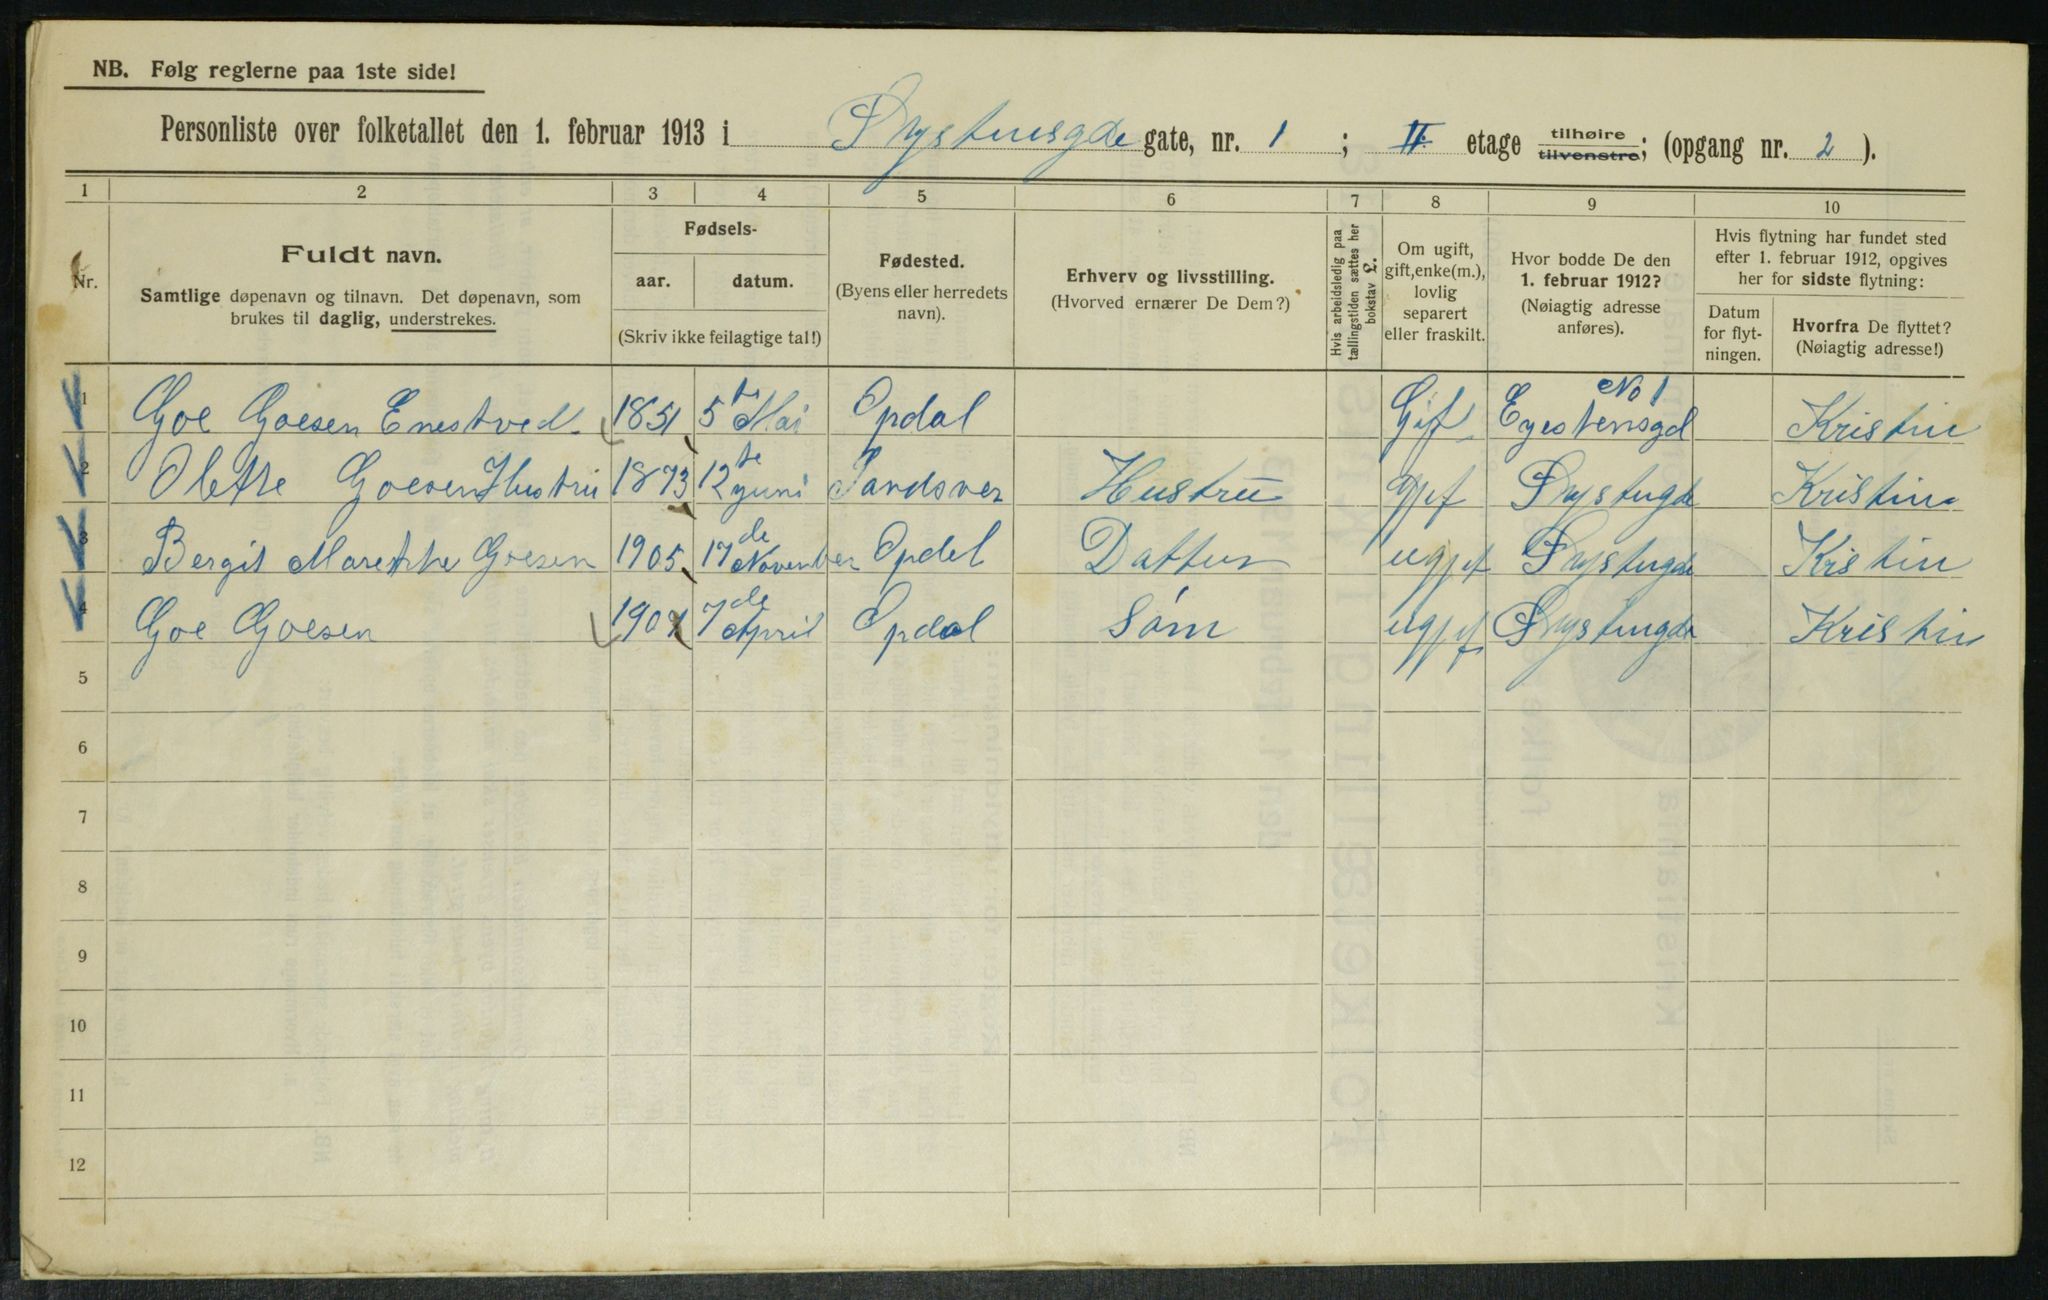 NB. Følg reglerne paa 1ste side!
Personliste over folketallet den 1. februar 1913 i gate, nr. 1; II. etage tilhøire tilvenstre; (opgang nr. 2).
1 2 3 4 5 6 7 8 9 10
Nr.
Fuldt navn.
Samtlige døpenavn og tilnavn. Det døpenavn, som
brukes til daglig, understrekes.
Fødsels-
aar. datum.
(Skriv ikke feilagtige tal!)
Fødested.
(Byens eller herredets
navn).
Erhverv og livsstilling.
(Hvorved ernærer De Dem?)
Hvis arbeidsledig paa
tællingstiden sættes her
bokstav L.
Om ugift,
gift, enke(m.),
lovlig
separert
eller fraskilt.
Hvor bodde De den
1. februar 1912?
(Nøiagtig adresse
anføres).
Hvis flytning har fundet sted
efter 1. februar 1912, opgives
her for sidste flytning:
Datum
for flyt-
ningen.
Hvorfra De flyttet?
(Nøiagtig adresse!)
1 Goe Goesen Enestved 1851 5te Mai Opdal Gif No 1 Kristin
2 Olette Goesen Hustru 1873 12te Juni Sandsver Hustru gif Kristin
3 Bergit Marethe Goesen 1905 17de November Opdal Datter ugif Kristin
4 Goe Goesen 7de April Opdal Søm ugif Kristin
5
6
7
8
9
10
11
12